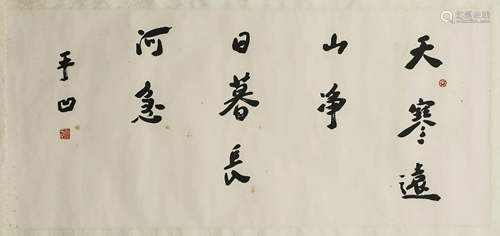 天寒遠
山淨
日暮長
河急
平凹